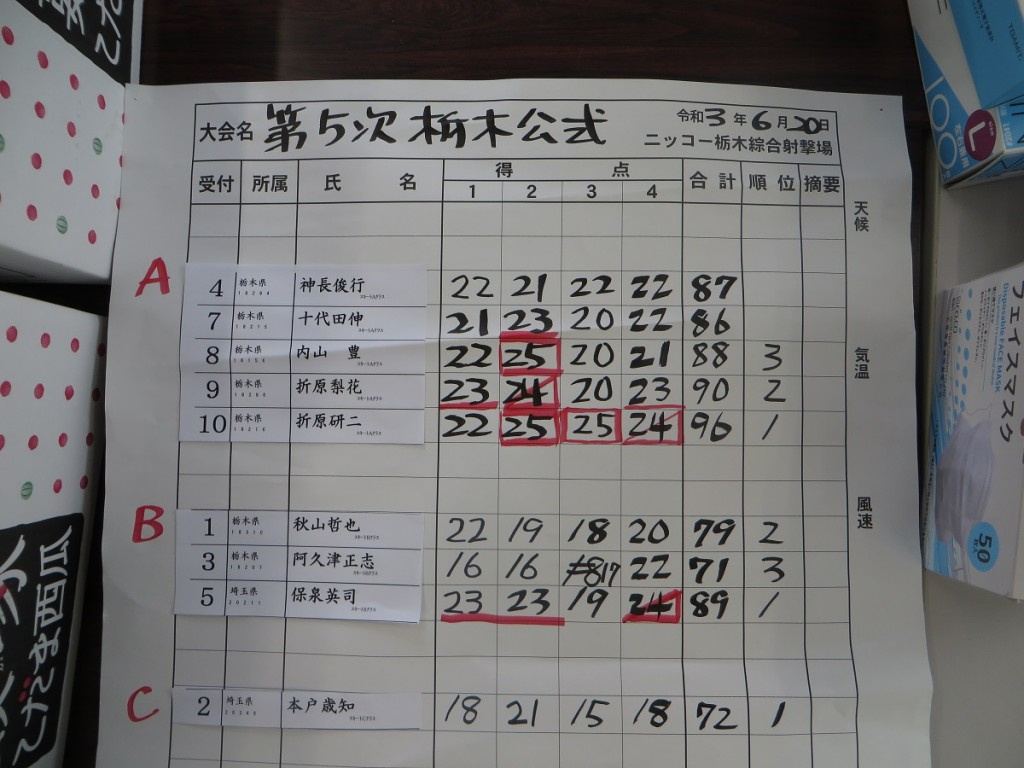 大会名 第5次 栃木公式 令和3年6月20日
ニッコー栃木綜合射撃場
受付 所属 氏名 得点 合計 順位 摘要
1 2 3 4
天候
A
4 栃木県 神長俊行 22 21 22 22 87
7 栃木県 十代田伸 21 23 20 22 86
8 栃木県 内山 豊 22 25 20 21 88 3
気温
9 栃木県 折原梨花 23 24 20 23 90 2
10 栃木県 折原研二 22 25 25 24 96 1
風速
B
1 栃木県 秋山哲也 22 19 18 20 79 2
3 栃木県 阿久津正志 16 16 17 22 71 3
5 埼玉県 保泉英司 23 23 19 24 89 1
C
2 埼玉県 本戸歳知 18 21 15 18 72 1
100
L
フェイスマスク
Disposable FACE MASK
50